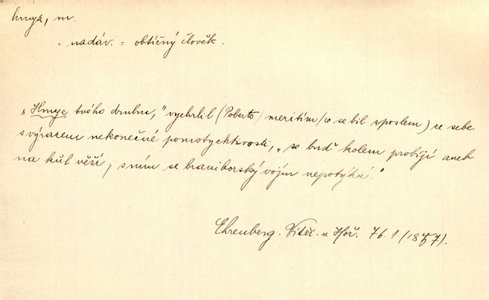 hmyz, m.
- nadáv. = obtížný člověk.
„Hmyze tvého druhu," vychrlil (Pobuta /meritim/o se bil s poslem) ze sebe
s výrazem nekonečné pomstychtivosti, „se buď kolem probíjí aneb
na kůl věší, s ním se braniborský vojín nepotýká."
Ehrenberg. Vítěz. u Hoř. 76. 1 (1877).